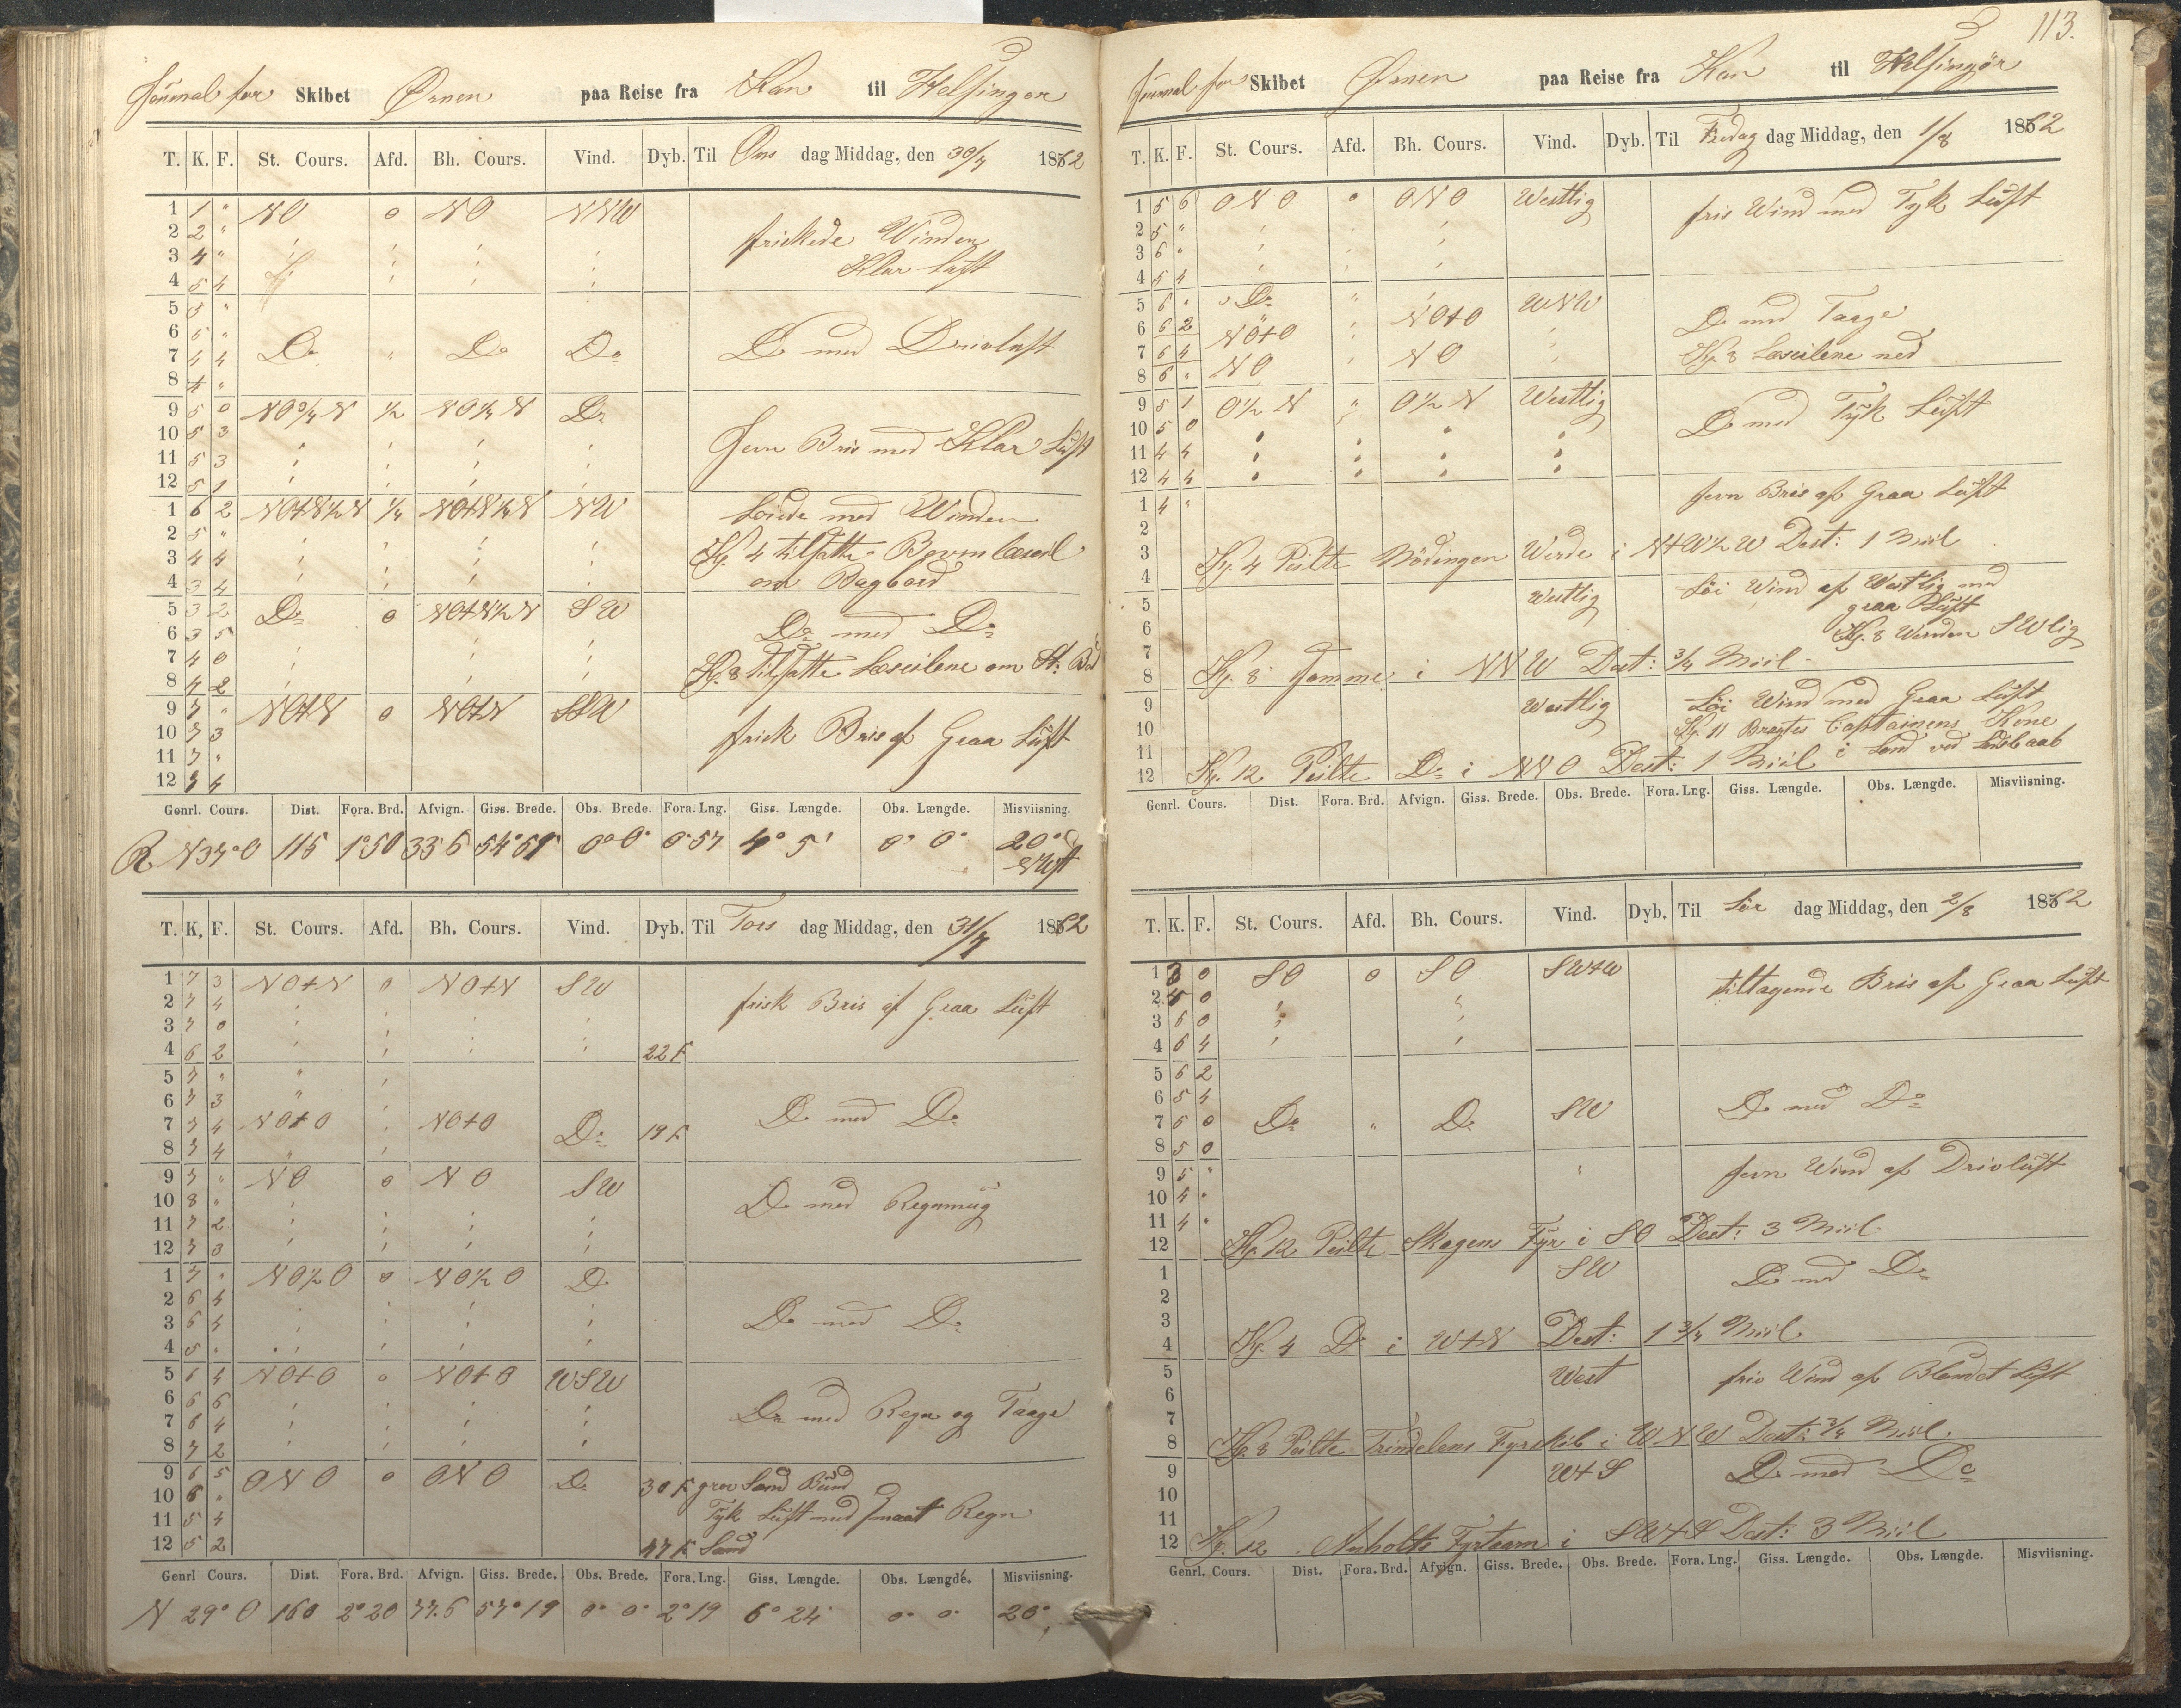 Journal for Skibet Ørnen paa Reise fra Kan til Helsingør
T. K. F. St. Cours. Afd. Bh. Cours. Vind. Dyb. Til Ons dag Middag, den 30/7 1862
1 1 " NO 0 NO NNW
2 2 " friskede Winden
3 4 " Klar Luft
4 5 4
5 5 "
6 5 "
7 4 4 Do " Do Do Do med Drivluft
8 4 "
9 5 0 NO 3/4 N 1/2 NO 1/4 N Do
10 5 3
11 5 3 Jevn Bris med Klar Luft
12 5 1
1 6 2 NO+N 1/2 N 1/4 NO+N 1/4 N NW Løiede med Winden
2 5 "
3 4 4 Kl. 4 tilsatte Bovenlæseil
4 3 4 om Bagbord
5 3 2 Do 0 NO+N 1/2 N SW
6 3 5 Do med Do
7 4 0 Kl. 8 tilsatte Læseilene om St: Bd
8 4 2
9 7 " NO+N 0 NO+N SSW
10 7 3 frisk Bris af Graa Luft
11 7 "
12 7 4
Genrl. Cours. Dist. Fora. Brd. Afvign. Giss. Brede. Obs. Brede. Fora. Lng. Giss. Længde. Obs. Længde. Misviisning.
R N 37° O 115 1°50 33 6 54° 59 0° 0' 0° 57 4° 5' 0° 0' 20° NWst
T. K. F. St. Cours. Afd. Bh. Cours. Vind. Dyb. Til Tors dag Middag, den 31/7 1862
1 7 3 NO+N 0 NO+N SW
2 7 4 frisk Bris af Graa Luft
3 7 0
4 6 2 22 F.
5 7 "
6 7 3
7 7 4 NO+O NO+O Do 19 F. Do med Do
8 7 4
9 7 " NO 0 NO SW
10 8 " Do med Regnmug
11 7 2
12 7 3
1 7 " NO 1/2 O 0 NO 1/2 O Do
2 6 4
3 6 4 Do med Do
4 5 "
5 6 4 NO+O 0 NO+O WSW
6 6 6
7 6 4 Do med Regn og Taage
8 7 2
9 6 5 ONO 0 ONO Do 30 F. grov Sand Bund
10 6 "
11 5 4 Tyk Luft med smaat Regn
12 5 2 47 F. Sand
Genrl Cours. Dist. Fora. Brd. Afvign. Giss. Brede. Obs. Brede. Fora. Lng. Giss. Længde. Obs. Længde. Misviisning.
N 29° O 160 2° 20 77.6 57° 19 0° 0' 2° 19 6° 24' 0° 0' 20°
113.
Journal for Skibet Ørnen paa Reise fra Kan til Helsingør
T. K. F. St. Cours. Afd. Bh. Cours. Vind. Dyb. Til Fredag dag Middag, den 1/8 1862
1 5 6 ONO 0 ONO Westlig fris Wind med Tyk Luft
2 5 "
3 6 "
4 5 4
5 6 " Do " WNW
6 6 2 NO+O NO+O Do med Taage
7 6 4 Kl. 8 Læseilene ned
8 6 " NO NO
9 5 1 O 1/2 N " O 1/2 N Westlig
10 5 0 Do med Tyk Luft
11 4 4
12 4 4
1 4 " Jevn Bris af Graa Luft
2
3 Kl. 4 Peilte Werde i N+W 1/2 W Dest: 1 Miil
4
5 Westlig Løi Wind af Westlig med
6 graa Luft
7 Kl. 8 Winden SWlig
8 Kl. 8 Samme i NNW Dest: 3/4 Miil
9 Westlig Løi Wind med Graa Luft
10 Kl. 11 Bragtes Captainens Kone
11 i Land ved
12 Kl. 12 Peilte Do i NNO Dest: 1 Miil
Genrl. Cours. Dist. Fora. Brd. Afvign. Giss. Brede. Obs. Brede. Fora. Lng. Giss. Længde. Obs. Længde. Misviisning.
T. K. F. St. Cours. Afd. Bh. Cours. Vind. Dyb. Til Lør dag Middag, den 2/8 1862
1 3 0 SO 0 SO SW+W tiltagende Bris af Graa Luft
2 5 0
3 6 0
4 6 4
5 6 2
6 5 4
7 6 0 Do " Do SW Do med Do
8 5 0
9 5 " Jevn Wind af Drivluft
10 4 "
11 4 "
12 Kl. 12 Peilte Skagens Fyr i SO Dest: 3 Miil
1 SW Do med Do
2
3
4 Kl. 4 Do i W+N Dest: 1 3/4 Miil
5 West fris Wind af Blandet Luft
6
7
8 Kl. 8 Peilte Trindelens Fyrskib i WNW Dest: 3/4 Miil
9 W+S Do med Do
10
11
12 Kl. 12 Anholts Fyrtaarn i SW+S Dest: 3 Miil
Genrl. Cours. Dist. Fora. Brd. Afvign. Giss. Brede. Obs. Brede. Fora. Lng. Giss. Længde. Obs. Længde. Misviisning.